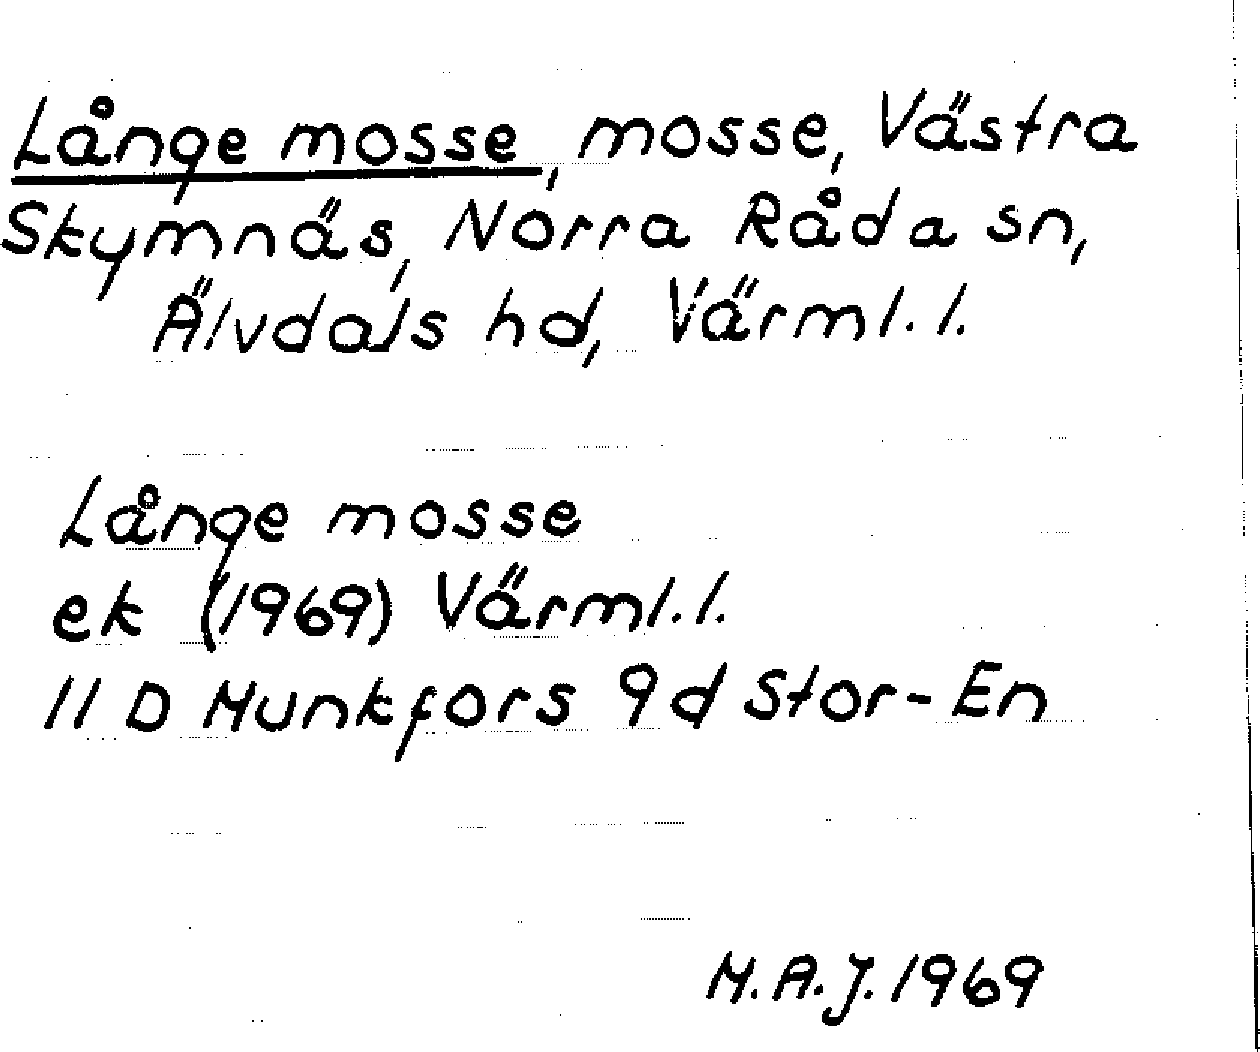 Långe mosse, mosse, Västra
Skymnäs, Norra Råda sn,
Älvdals hd, Värml. l.
Långe mosse
ek (1969) Värml. l.
11 D Munkfors 9 d Stor-En
M.A.J. 1969